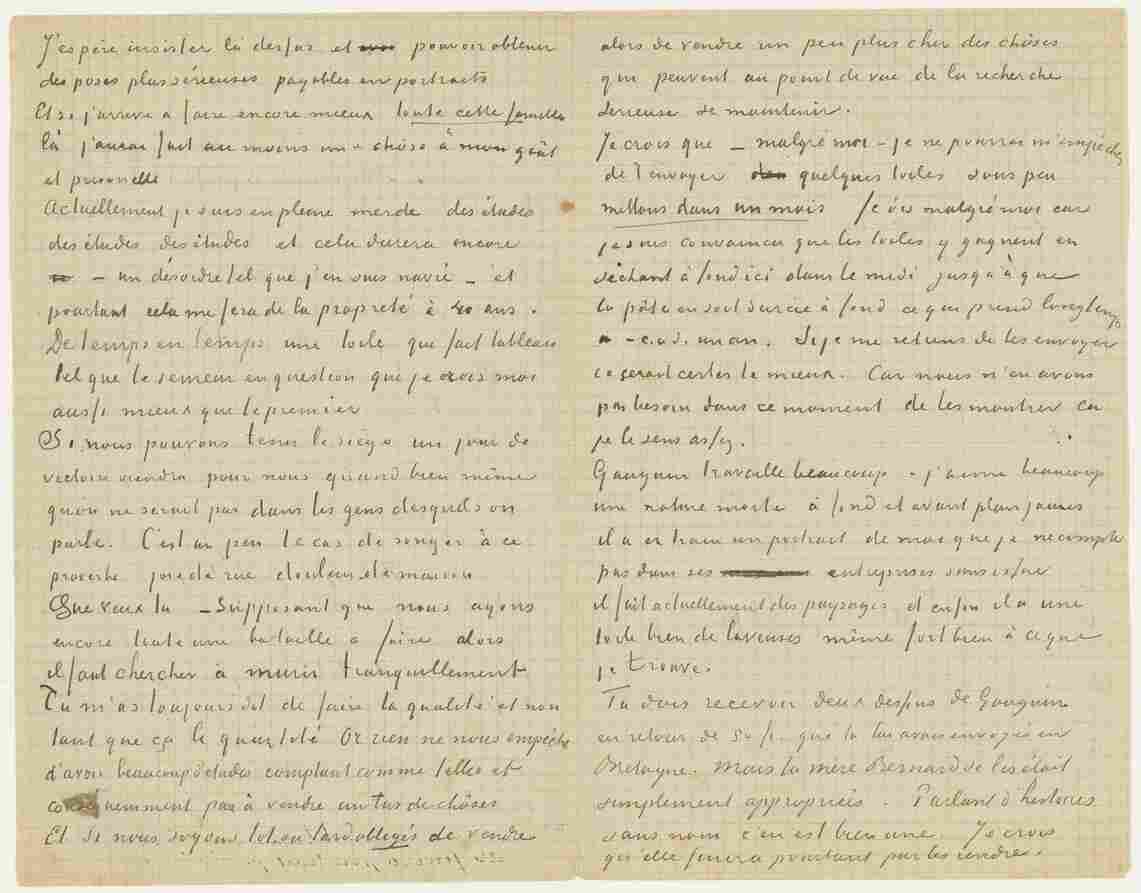 J'espère insister là dessus et pouvoir obtenir
des poses plus sérieuses payables en portraits
Et si j'arrive à faire encore mieux toute cette famille
là j'aurai fait au moins une chôse à mon gout
et personelle
Actuellement je suis en pleine merde des études
des études des études et cela durera encore
– un désordre tel que j'en suis navré – et
pourtant cela me fera de la propreté à 40 ans.
De temps en temps une toile que fait tableau
tel que le semeur en question que je crois moi
aussi mieux que le premier
Si nous pouvons tenir le siège un jour de
victoire viendra pour nous quand bien même
qu'on ne serait pas dans les gens desquels on
parle. C'est un peu le cas de songer à ce
proverbe joie de rue douleur de maison
Que veux tu – Supposant que nous ayons
encore toute une bataille à faire alors
il faut chercher à murir tranquillement
Tu m'as toujours dit de faire la qualité et non
tant que ça la quantité Or rien ne nous empêche
d'avoir beaucoup d'études comptant comme telles et
consequemment pas à vendre un tas de chôses
Et si nous soyons tot ou tard obligés de vendre
alors de vendre un peu plus cher des chôses
qui peuvent au point de vue de la recherche
serieuse se maintenir.
Je crois que – malgré moi – je ne pourrai m'empêcher
de t'envoyer quelques toiles sous peu
mettons dans un mois Je dis malgré moi car
je suis convaincu que les toiles y gagnent en
séchant à fond ici dans le midi jusqu'à que
la pâte en soit durcie à fond ce qui prend longtemps
– c.à.d. un an. Si je me retiens de les envoyer
ce serait certes le mieux. Car nous n'en avons
pas besoin dans ce moment de les montrer ca
je le sens assez.
Gauguin travaille beaucoup – j'aime beaucoup
une nature morte à fond et avant plan jaunes
il a en train un portrait de moi que je ne compte
pas dans ses entreprises sans issue
il fait actuellement des paysages et enfin il a une
toile bien de laveuses même fort bien à ce que
je trouve.
Tu dois recevoir deux dessins de Gauguin
en retour de 50 fr. que tu lui avais envoyés en
Bretagne. Mais la mère Bernard se les était
simplement appropriés. Parlant d'histoires
sans nom c'en est bien une. Je crois
qu'elle finira pourtant par les rendre.